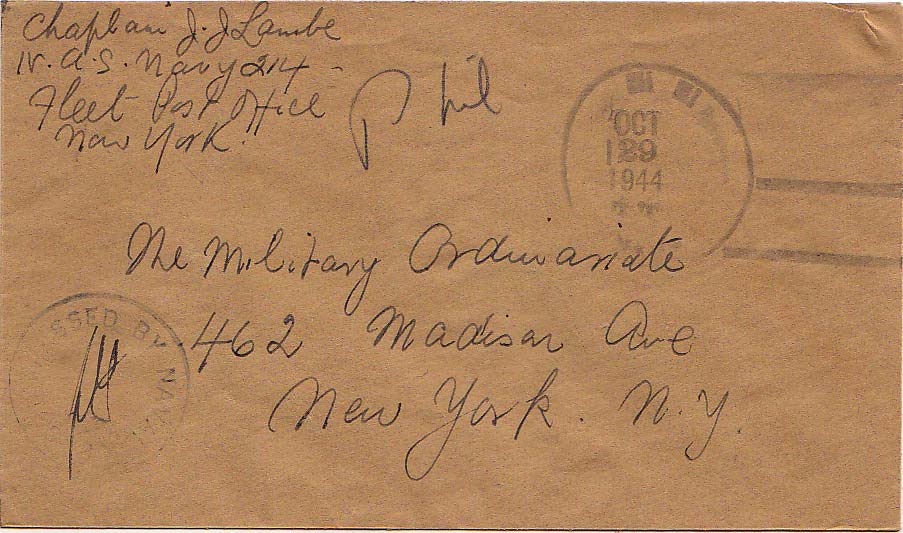 Chaplain J. J Lambe
N.A.S. Navy 214 -
Fleet Post Office
New York.
Phil
OCT
29
1944
The Military Ordinariate
462 Madison Ave
New York. N.Y.
PASSED BY NAVAL